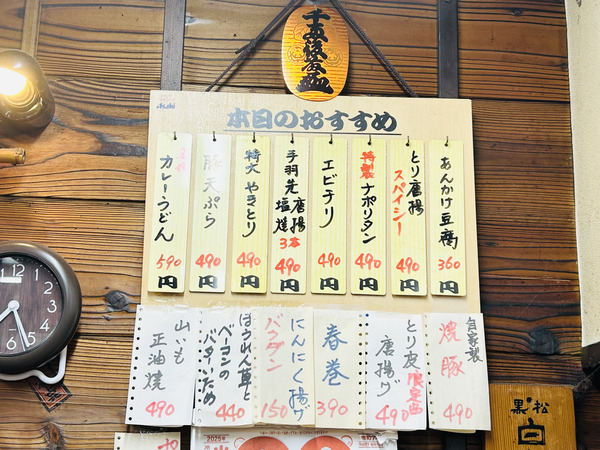 Asahi
本日のおすすめ
あんかけ豆腐
360円
とり唐揚
スパイシー
490円
特製ナポリタン
490円
エビチリ
490円
手羽先唐揚
塩焼
3本
490円
特大やきとり
490円
豚天ぷら
490円
カレーうどん
590円
自家製
焼豚
490
とり皮
唐揚げ
490
春巻
390
にんにく揚げ
バクダン
150
ほうれん草と
ベーコンの
バターいため
440
山いも
正油焼
490
黒松
白
2025年